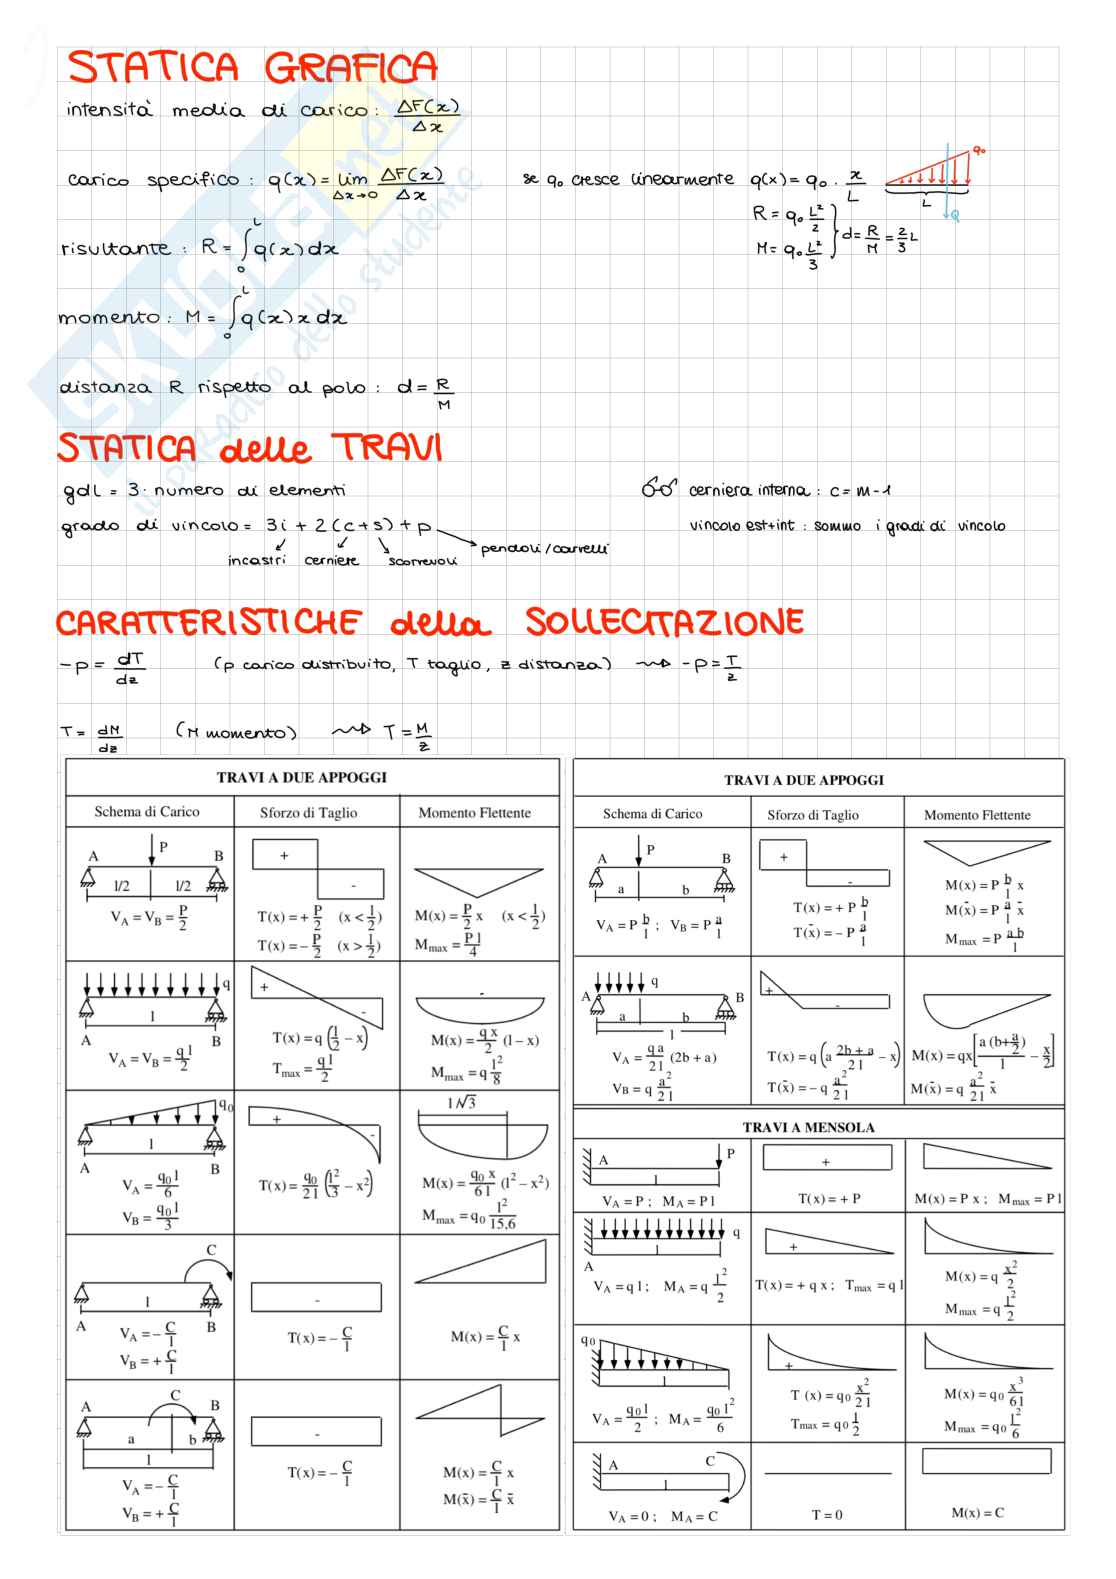 STATICA GRAFICA
intensità media di carico: ΔF(x)/Δx
carico specifico: q(x) = lim Δx→0 ΔF(x)/Δx
se q₀ cresce linearmente q(x) = q₀ · x/L
q₀
L
Q
R = q₀ L²/2
M = q₀ L²/3
d = R/M = 2/3 L
risultante: R = ∫₀ᴸ q(x) dx
momento: M = ∫₀ᴸ q(x) x dx
distanza R rispetto al polo: d = R/M
STATICA delle TRAVI
gdl = 3 · numero di elementi
grado di vincolo = 3i + 2(c+s) + p
incastri cerniere scorrevoli pendoli/carrelli
cerniera interna: c = m-1
vincolo est+int: sommo i gradi di vincolo
CARATTERISTICHE della SOLLECITAZIONE
-p = dT/dz (p carico distribuito, T taglio, z distanza) ⇝ -p = T/z
T = dM/dz (M momento) ⇝ T = M/z
TRAVI A DUE APPOGGI
Schema di Carico Sforzo di Taglio Momento Flettente
A P B
l/2 l/2
+ -
V_A = V_B = P/2
T(x) = + P/2 (x < l/2)
T(x) = − P/2 (x > l/2)
M(x) = P/2 x (x < l/2)
M_max = P l/4
q
l
A B
+ -
-
V_A = V_B = q l/2
T(x) = q (l/2 − x)
T_max = q l/2
M(x) = q x/2 (l − x)
M_max = q l²/8
q₀
l
A B
+ -
l/√3
V_A = q₀ l/6
V_B = q₀ l/3
T(x) = q₀/2l (l²/3 − x²)
M(x) = q₀ x/6l (l² − x²)
M_max = q₀ l²/15,6
C
l
A B
-
V_A = − C/l
V_B = + C/l
T(x) = − C/l
M(x) = C/l x
A C B
a b
l
-
V_A = − C/l
V_B = + C/l
T(x) = − C/l
M(x) = C/l x
M(x̄) = C/l x̄
TRAVI A DUE APPOGGI
Schema di Carico Sforzo di Taglio Momento Flettente
A P B
a b
+ -
V_A = P b/l ; V_B = P a/l
T(x) = + P b/l
T(x̄) = − P a/l
M(x) = P b/l x
M(x̄) = P a/l x̄
M_max = P a b/l
q
A B
a b
l
+ -
V_A = q a/2l (2b + a)
V_B = q a²/2l
T(x) = q (a 2b + a/2l − x)
T(x̄) = − q a²/2l
M(x) = qx[a (b+a/2)/l − x/2]
M(x̄) = q a²/2l x̄
TRAVI A MENSOLA
A P
l
+
V_A = P ; M_A = P l
T(x) = + P
M(x) = P x ; M_max = P l
q
l
A
+
V_A = q l ; M_A = q l²/2
T(x) = + q x ; T_max = q l
M(x) = q x²/2
M_max = q l²/2
q₀
l
+
V_A = q₀ l/2 ; M_A = q₀ l²/6
T (x) = q₀ x²/2l
T_max = q₀ l/2
M(x) = q₀ x³/6l
M_max = q₀ l²/6
A C
l
V_A = 0 ; M_A = C
T = 0
M(x) = C
SKUOLA.net
il paradiso dello studente